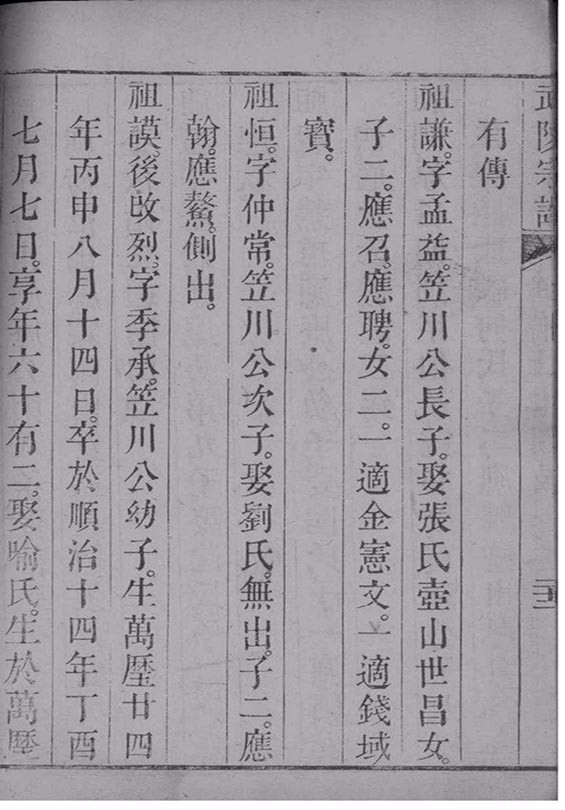 武陵宗譜
有傳
祖謙。字孟益。笠川公長子。娶張氏壺山世昌女。
子二。應召。應聘。女二。一適金憲文。一適錢域
寳。
祖恒。字仲常。笠川公次子。娶劉氏。無出。子二。應
翰。應鰲。側出。
祖謨。後改烈。字季承。笠川公幼子。生萬歷廿四
年丙申八月十四日。卒於順治十四年丁酉
七月七日。享年六十有二。娶喻氏。生於萬歷